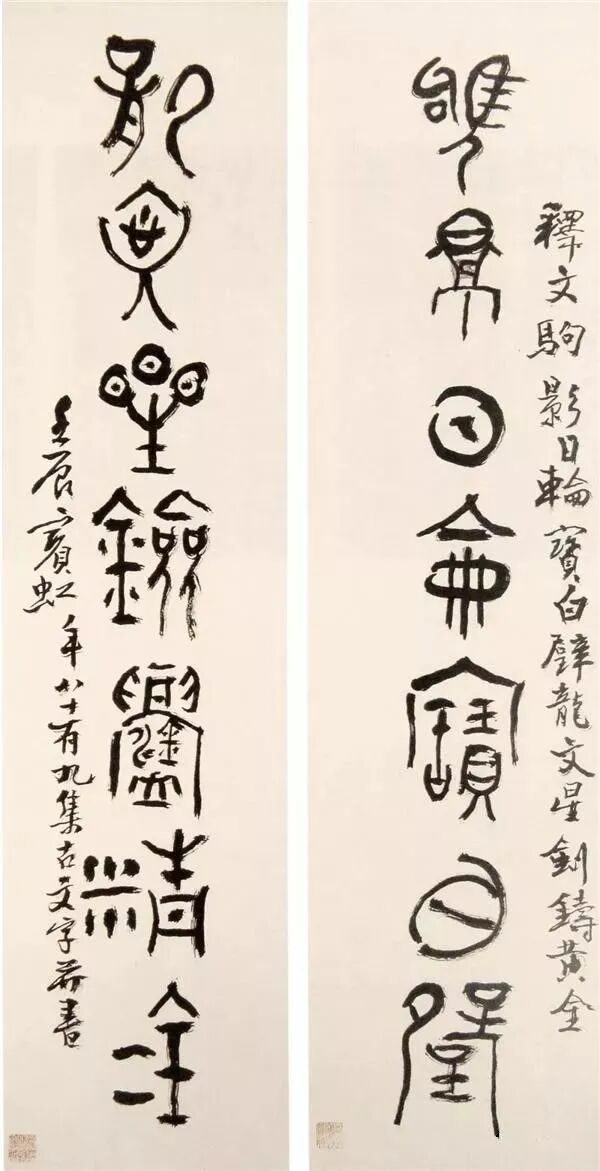 釋文駒影日輪寶白璧龍文星劍鑄黃金
駒景日侖寶白璧
龍文星鐱鑄黃金
壬辰賓虹年八十有九集古文字并書